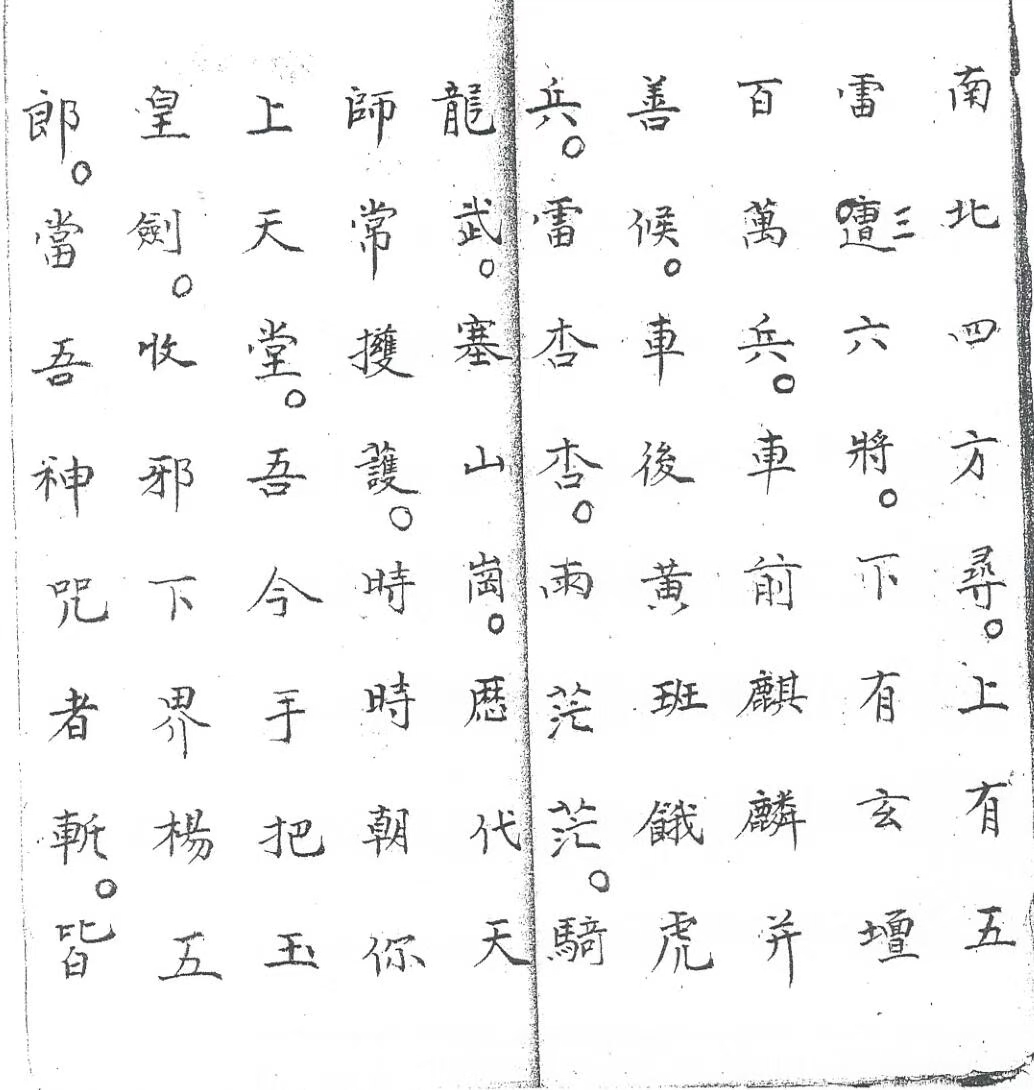 南北四方尋。上有五
雷三遭六將。下有玄壇
百萬兵。車前麒麟并
善候。車後黃班餓虎
兵。雷杳杳。雨茫茫。騎
龍武。塞山崗。歷代天
師常擭護。時時朝你
上天堂。吾今手把玉
皇劍。收邪下界楊五
郎。當吾神咒者斬。皆